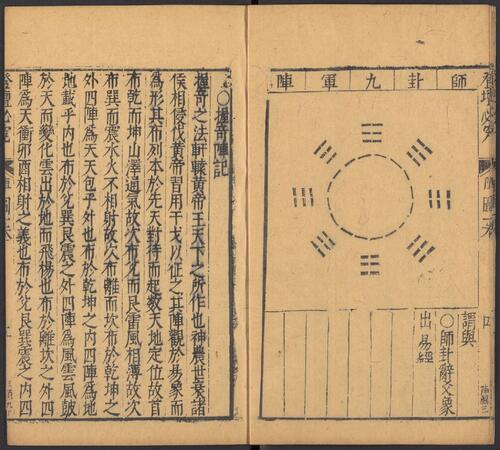 師卦九軍陣
謂與
○師卦辭爻象
出易經
登壇必究
四
○握奇陣記
握奇之法軒轅黃帝王天下之所作也神農世衰諸
侯相侵伐黃帝習用干戈以征之其陣觀於易象而
爲形其布列本於先天對待而起數天地定位故首
布乾而坤山澤通氣故次布兌而艮雷風相薄故次
布巽而震水火不相射故次布離而坎布於乾坤之
外四陣爲天天包乎外也布於乾坤之內四陣爲地
地載乎內也布於兌巽艮震之外四陣爲風雲風皷
於天而變化雲出於地而飛揚也布於離坎之外四
陣爲天衝卯酉相射之義也布於兌艮巽震之內四
登壇必究